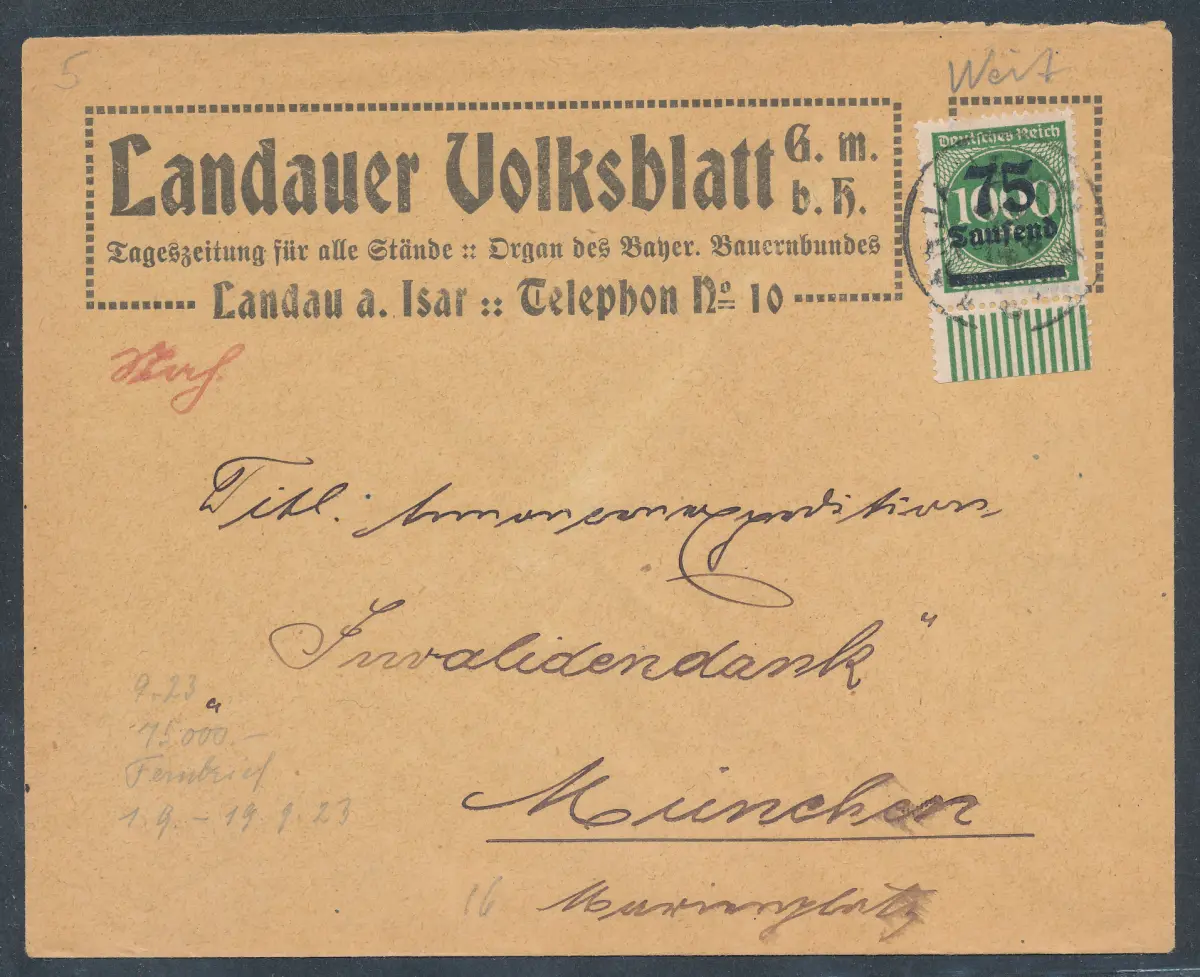 5
Weit
Landauer Volksblatt G. m. b. H.
Tageszeitung für alle Stände :: Organ des Bayer. Bauernbundes
Landau a. Isar :: Telephon No 10
Deutsches Reich
1000
75
Tausend
Titl. Annoncenexpedition
„Invalidendank“
München
Marienplatz
9.23
75000.–
Fernbrief
1.9. – 19.9.23
16